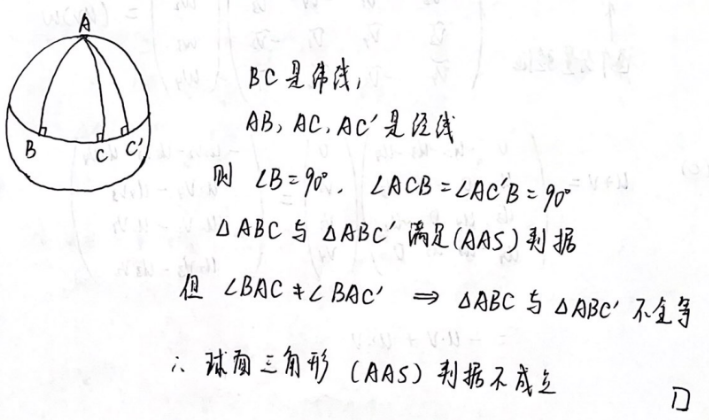 A
B
C
C'
BC是纬线,
AB, AC, AC'是经线
则 ∠B=90°, ∠ACB=∠AC'B=90°
△ABC 与 △ABC' 满足(AAS)判据
但 ∠BAC≠∠BAC' ⇒ △ABC 与 △ABC' 不全等
∴ 球面三角形 (AAS) 判据不成立